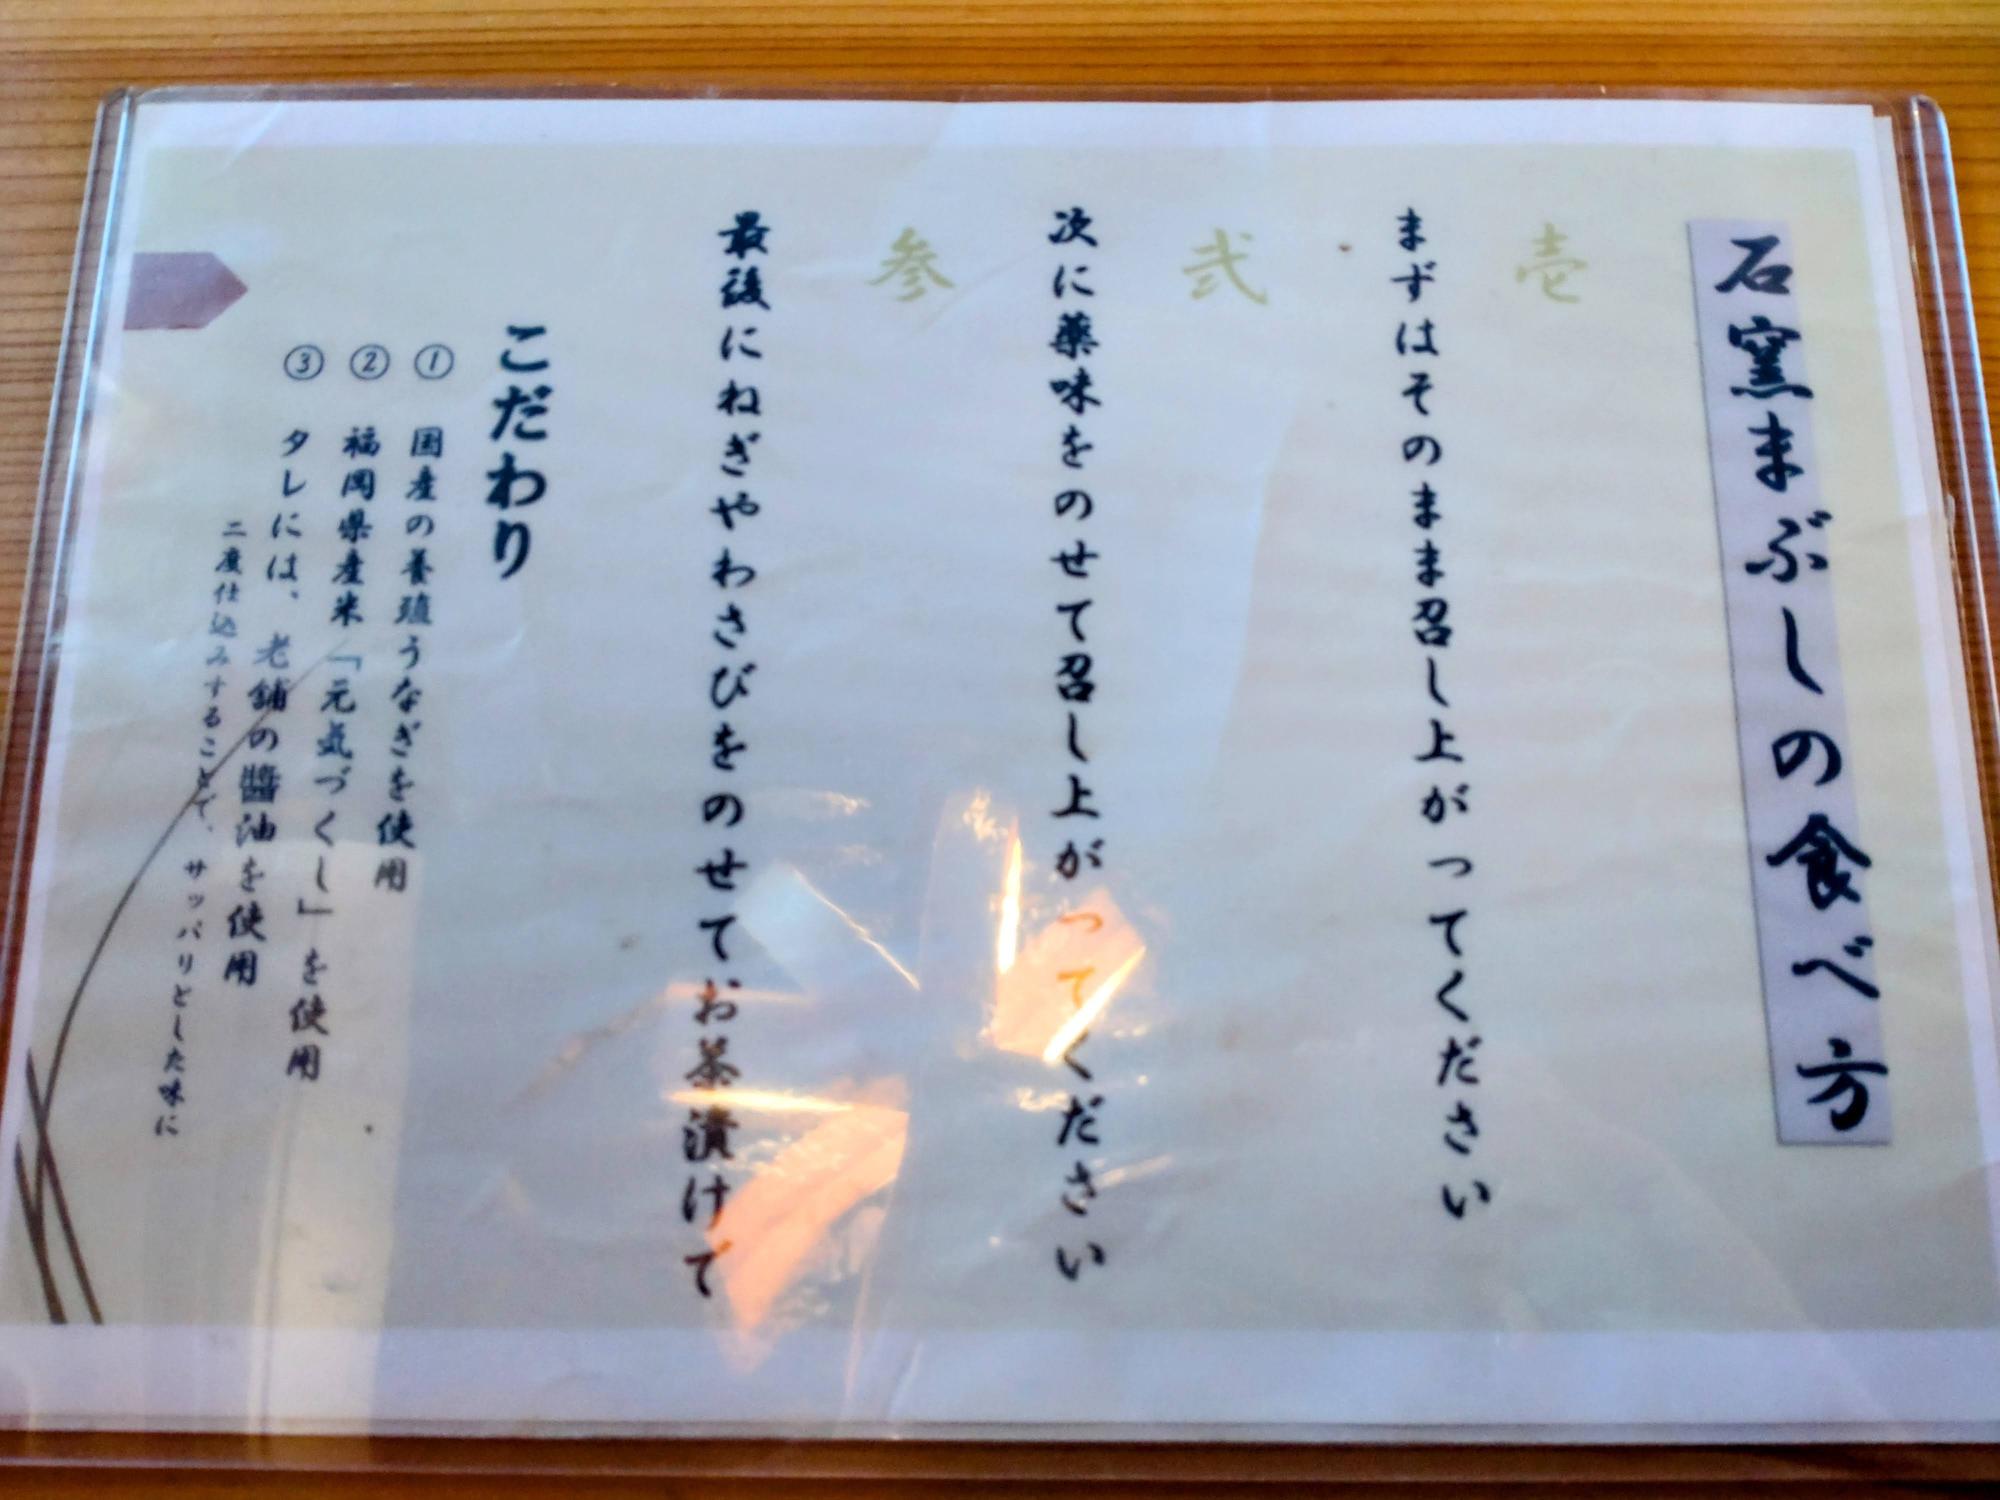 石窯まぶしの食べ方
壱
まずはそのまま召し上がってください
弐
次に薬味をのせて召し上がってください
参
最後にねぎやわさびをのせてお茶漬けで
こだわり
① 国産の養殖うなぎを使用
② 福岡県産米「元気づくし」を使用
③ タレには、老舗の醬油を使用
二度仕込みすることで、サッパリとした味に